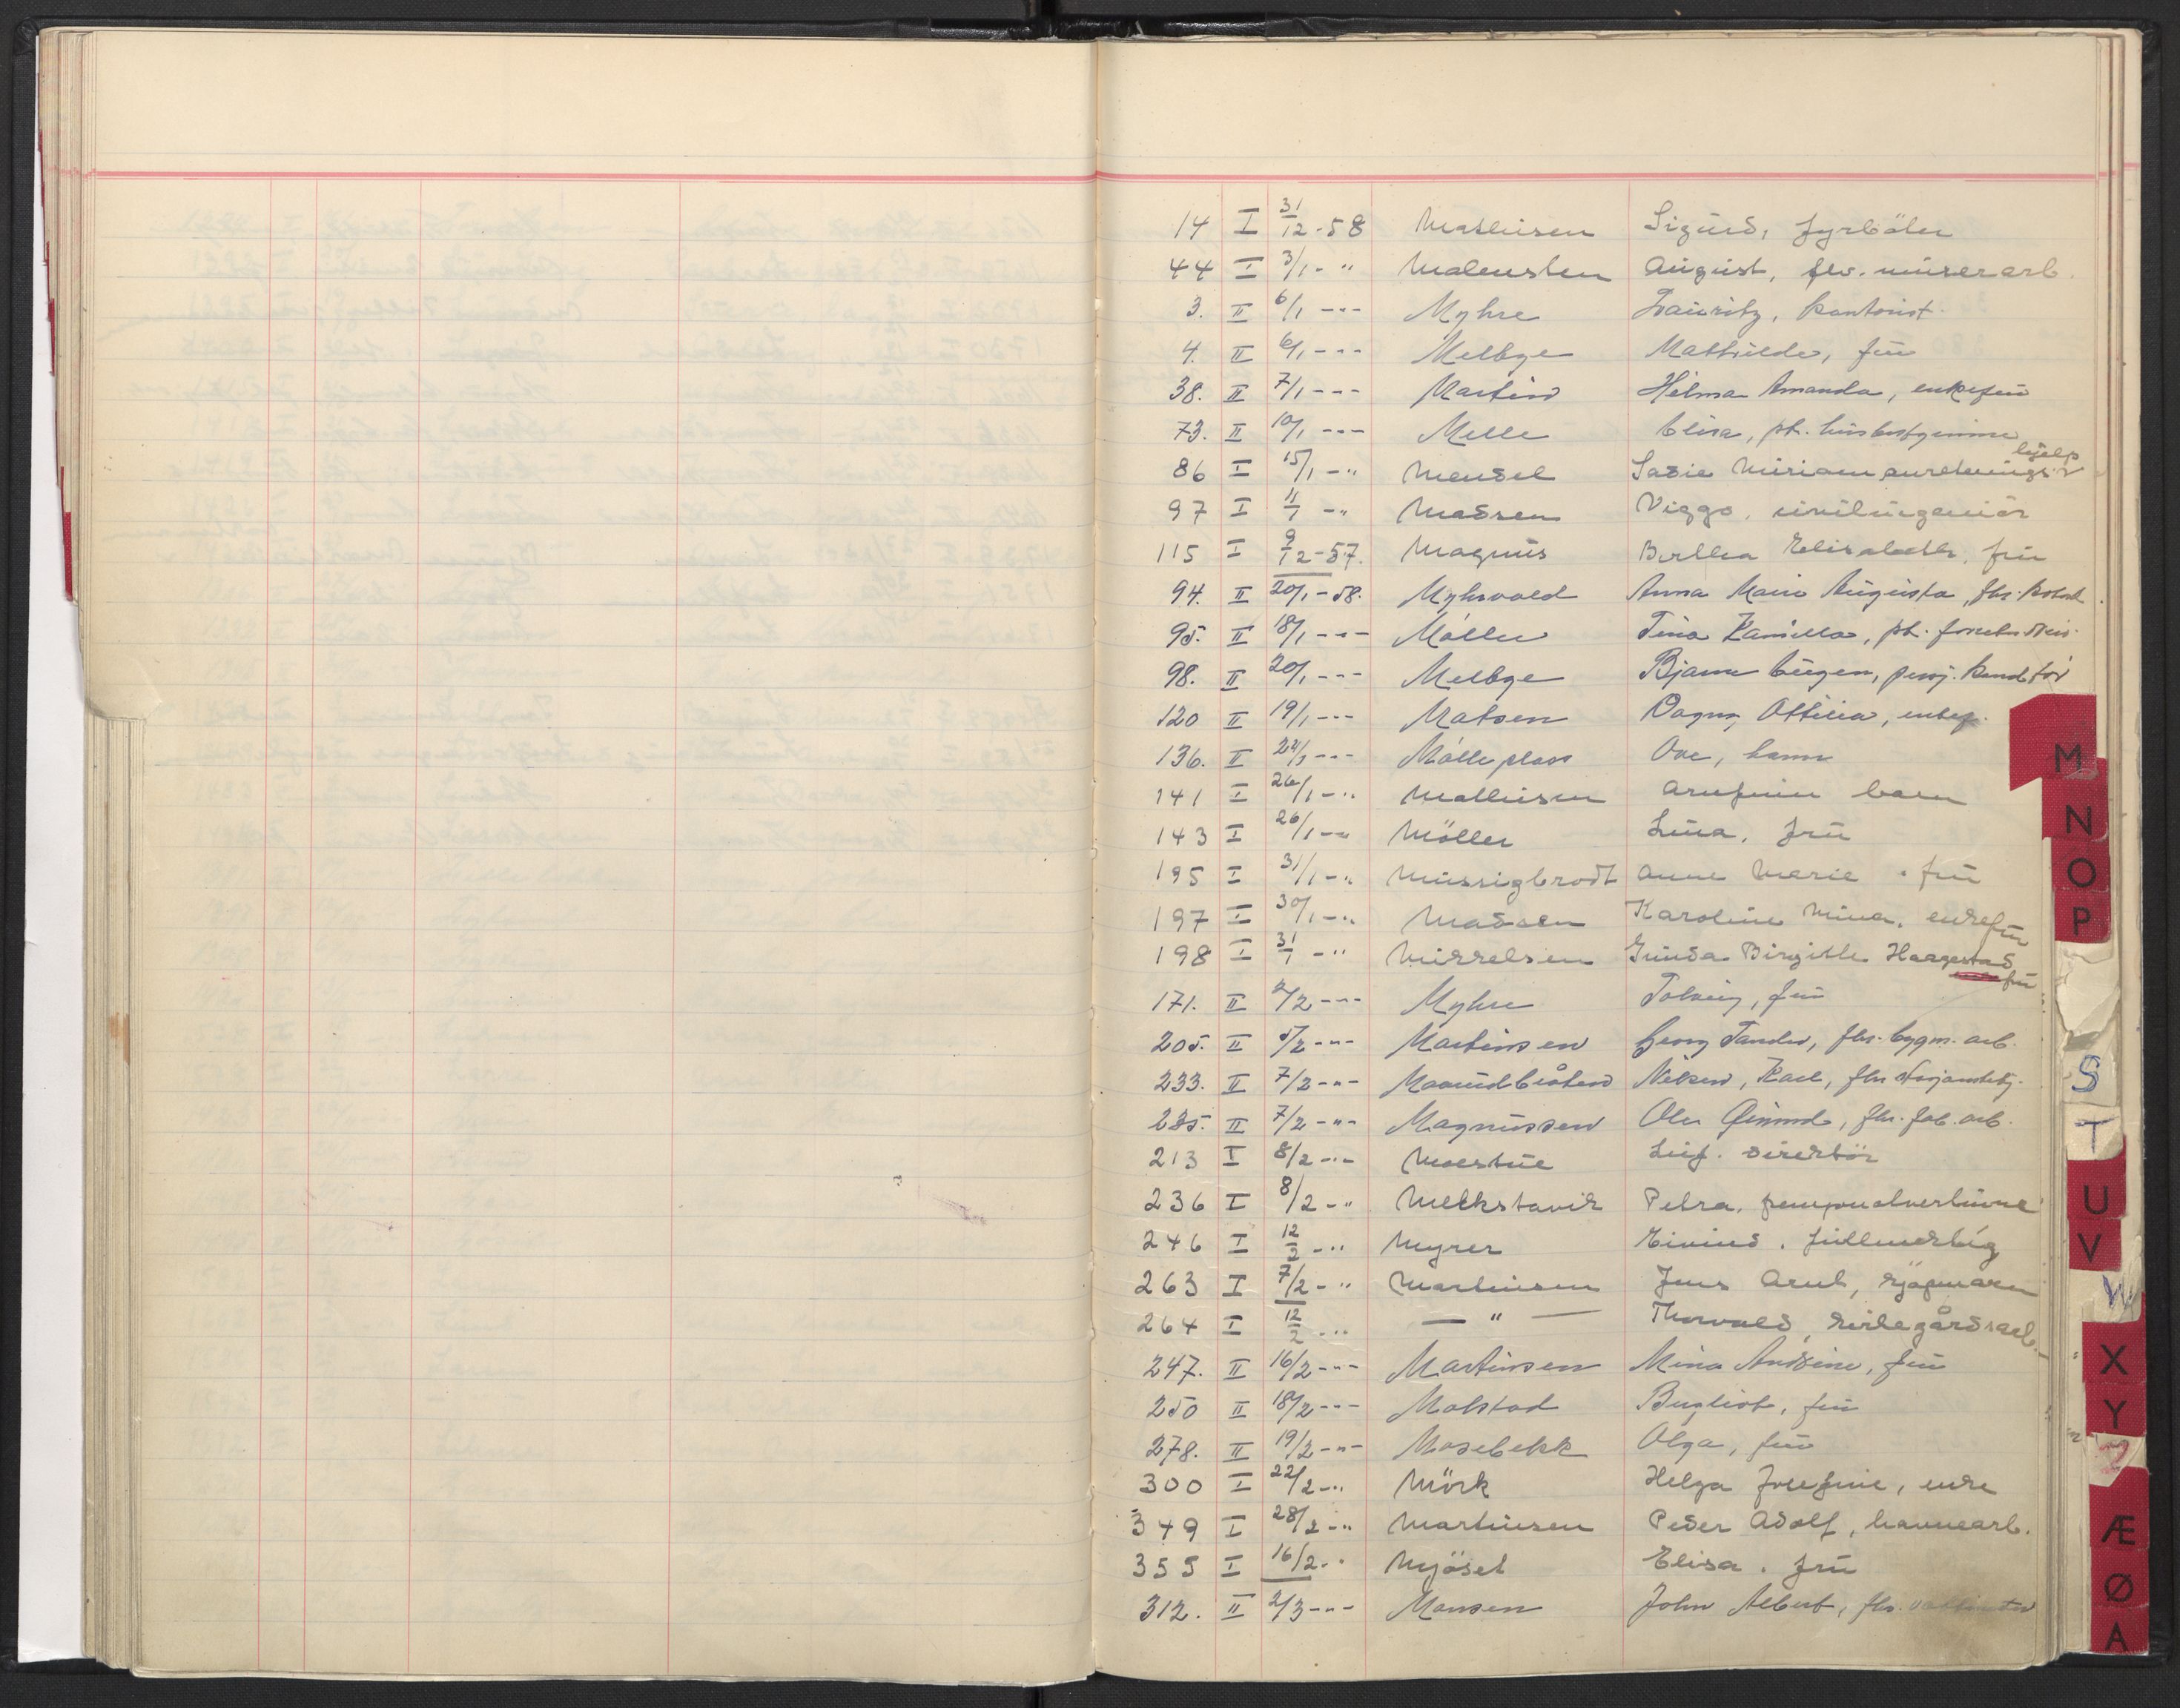 14 I 31/12-58 Mathisen Sigurd, fyrböter
44 I 3/1-" Malmsten August, flv. murerarb.
3. II 6/1 -"- Myhre Lauritz, kontorist.
4. II 6/1 -"- Melbye Mathilde, fru
38. II 7/1 -"- Martins Hilma Amanda, enkefru
73. II 10/1 -"- Melle Elisa, ph.
86 I 15/1 -" Mendel Sadie Miriam hjelp
97 I 11/1 -" Madsen Viggo, sivilingeniör
115 I 9/12-57. Magnus Bertha Elisabeth, fru
94. II 20/1-58. Myhrvold Anna Marie Augusta, fhv.
95. II 18/1 -"- Möller Tina Kamilla, ph.
98. II 20/1 -"- Melbye Bjarne Eugen, pensj.
120 II 19/1 -"- Matsen Dagny Ottilia, enkef.
136. II 24/1 -"- Mölleplass Ove, barn
141 I 26/1 -" Mathisen Arnfinn barn
143 I 26/1 -" Möller Lina, fru
195 I 31/1 -" Müssigbrodt Anne Marie. fru
197 I 30/1 -" Madsen Karoline Mina, enkefru
198 I 31/1 -" Mikkelsen Gunda Birgitte Hargestad fru
171. II 2/2 -"- Myhre Solveig, fru
205. II 5/2 -"- Martinsen Georg Sander, fhv. bygn. arb.
233. II 7/2 -"- Nilsen, Karl, fhv.
235. II 7/2 -"- Magnussen Ole fhv. fab. arb.
213 I 8/2 -"- Moestue Leif. direktör
236 I 8/2 -" Melkstavik Petra.
246 I 12/2 -" Myrer Eivind. fullmektig
263 I 7/2 -" Martinsen Jens Arnt, kjöpmann
264 I 12/2 -" — " — Thorvald, kirkegårdsarb.
247. II 16/2 -"- Martinsen Mina Andrine, fru
250 II 18/2 -"- Molstad Bergliot, fru
278. II 19/2 -"- Mosebekk Olga, fru
300 I 22/2 -" Mörk Helga Josefine, enke
349 I 28/2 -" Martinsen Peder Adolf, havnearb.
355 I 16/2 -" Mjöset Elisa. fru
312. II 2/3 -"- Monsen John Albert, fhv.
M
N
O
P
S
T
U
V
W
X
Y
Z
Æ
Ø
A